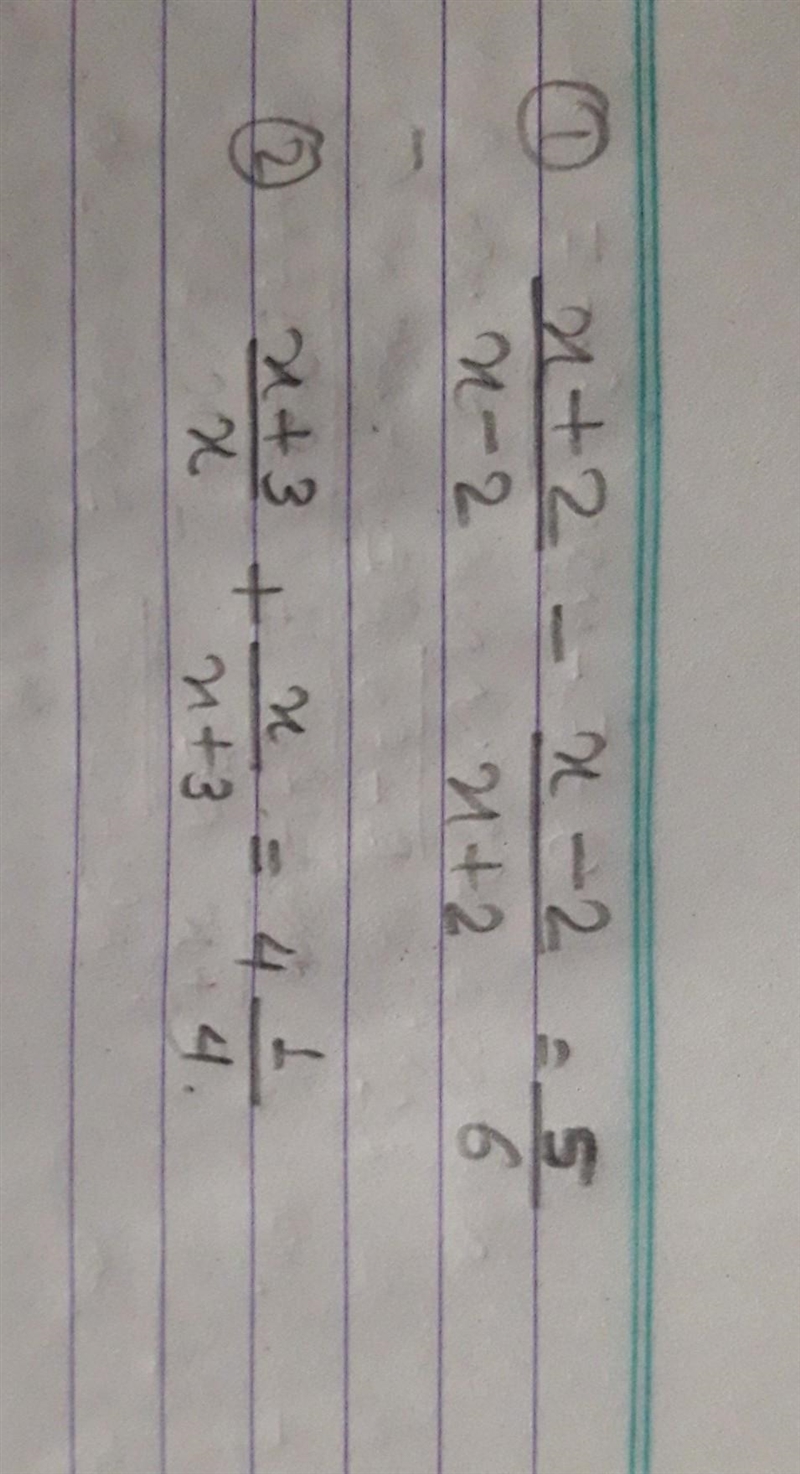 ① x+2/x-2 - x-2/x+2 = 5/6
② x+3/x + x/x+3 = 4 1/4.